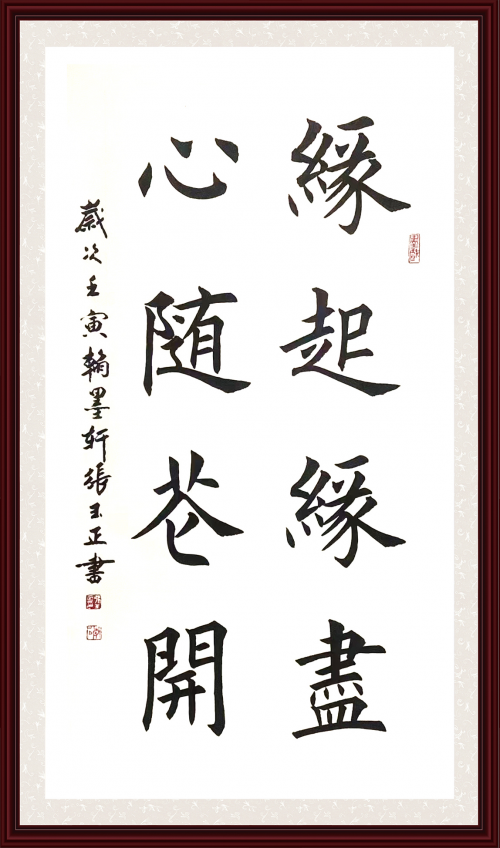 緣起緣盡
心随花開
歲次壬寅翰墨轩張玉正書